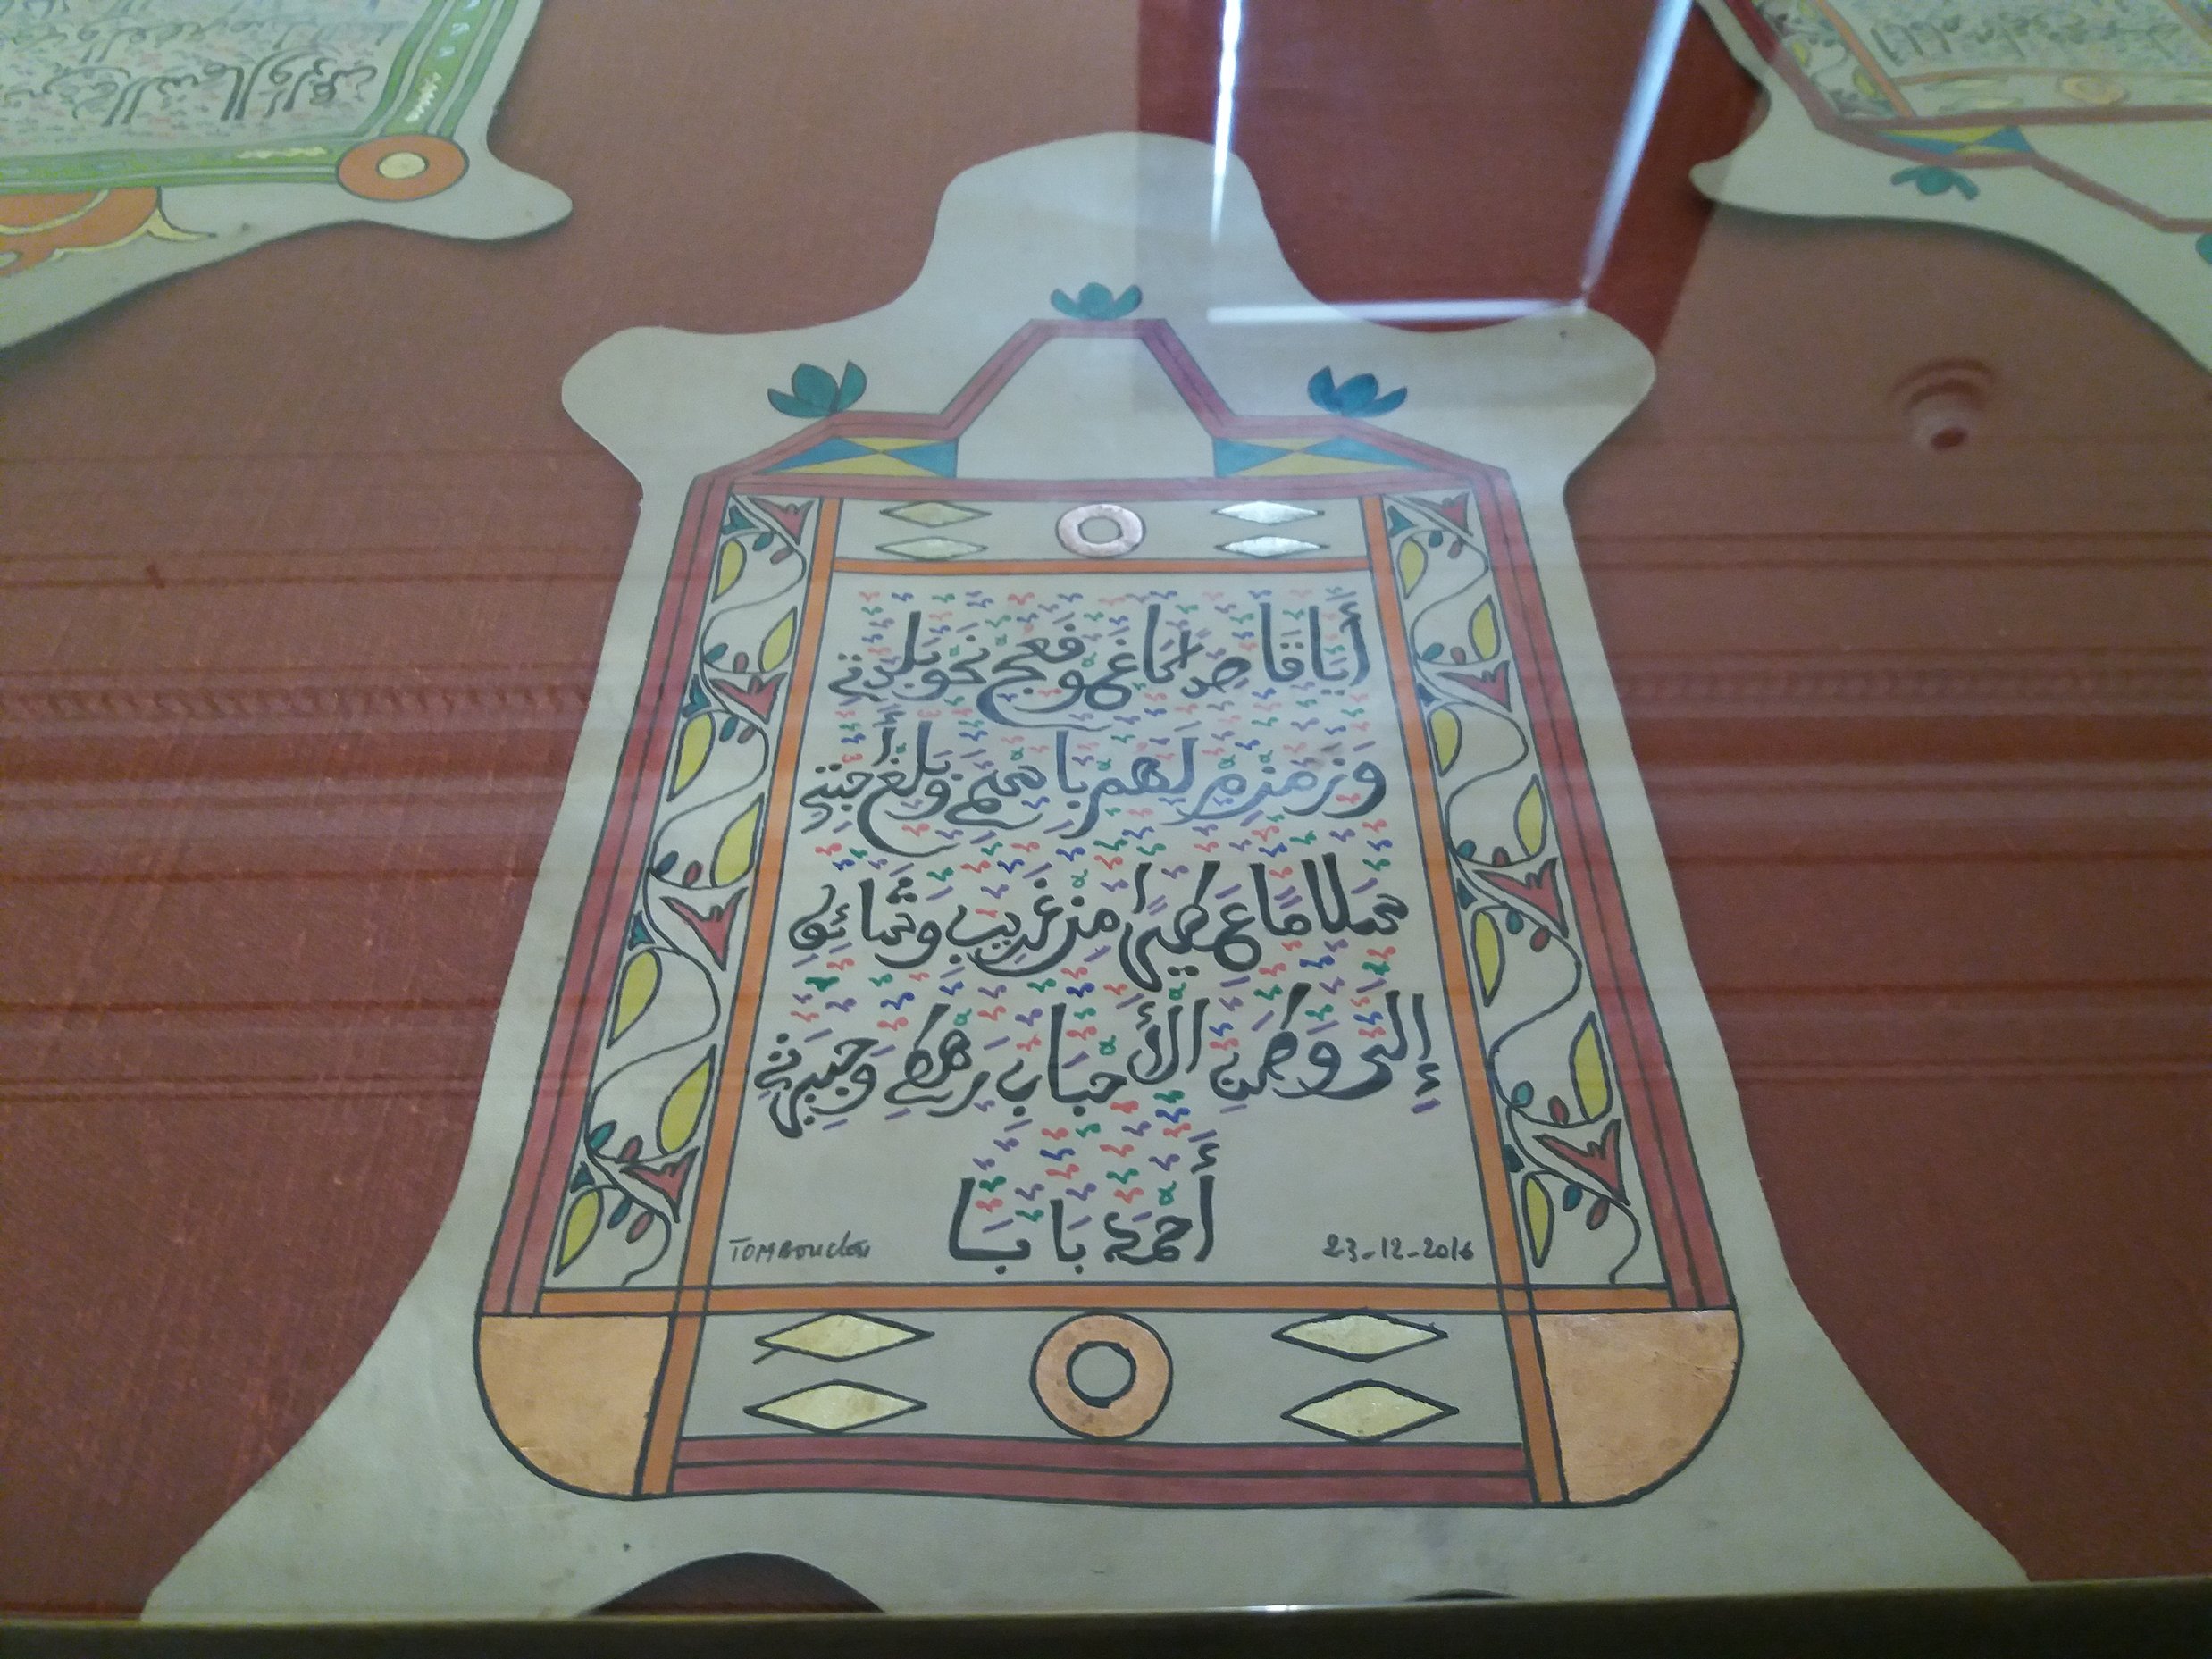 أيا قاصدا كاغو فعج نحو بلدتي
وزمزم لهم باسمي وبلغ أحبتي
سلاما عطيرا من غريب وشائق
إلى وطن الأحباب رهطي وجيرتي
أحمد بابا
TOMBOUCTOU
23-12-2016